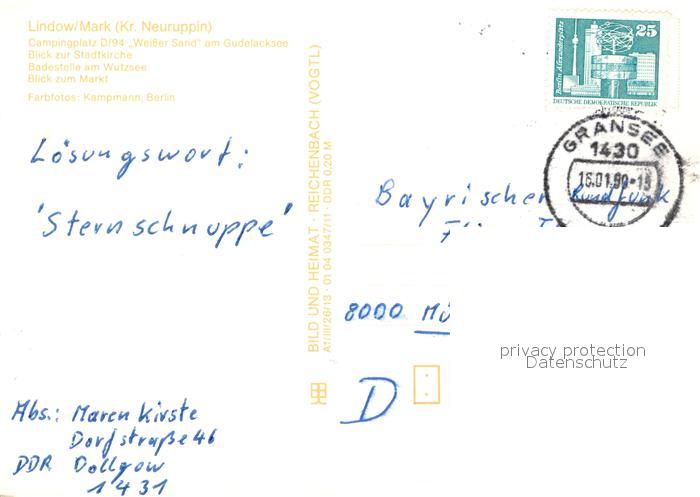 Lindow/Mark (Kr. Neuruppin)
Campingplatz D/94 „Weißer Sand" am Gudelacksee
Blick zur Stadtkirche
Badestelle am Wutzsee
Blick zum Markt
Farbfotos: Kampmann, Berlin
Lösungswort:
'Sternschnuppe'
Abs.: Maren Kirste
Dorfstraße 46
DDR Dollgow
1431
BILD UND HEIMAT · REICHENBACH (VOGTL)
A1/III/26/13 · 01 04 0347/11 · DDR 0,20 M
25
Berlin, Alexanderplatz
DEUTSCHE DEMOKRATISCHE REPUBLIK
GRANSEE
1430
16.01.90-15
Bayrischer Rundfunk
8000 Mü
D
privacy protection
Datenschutz